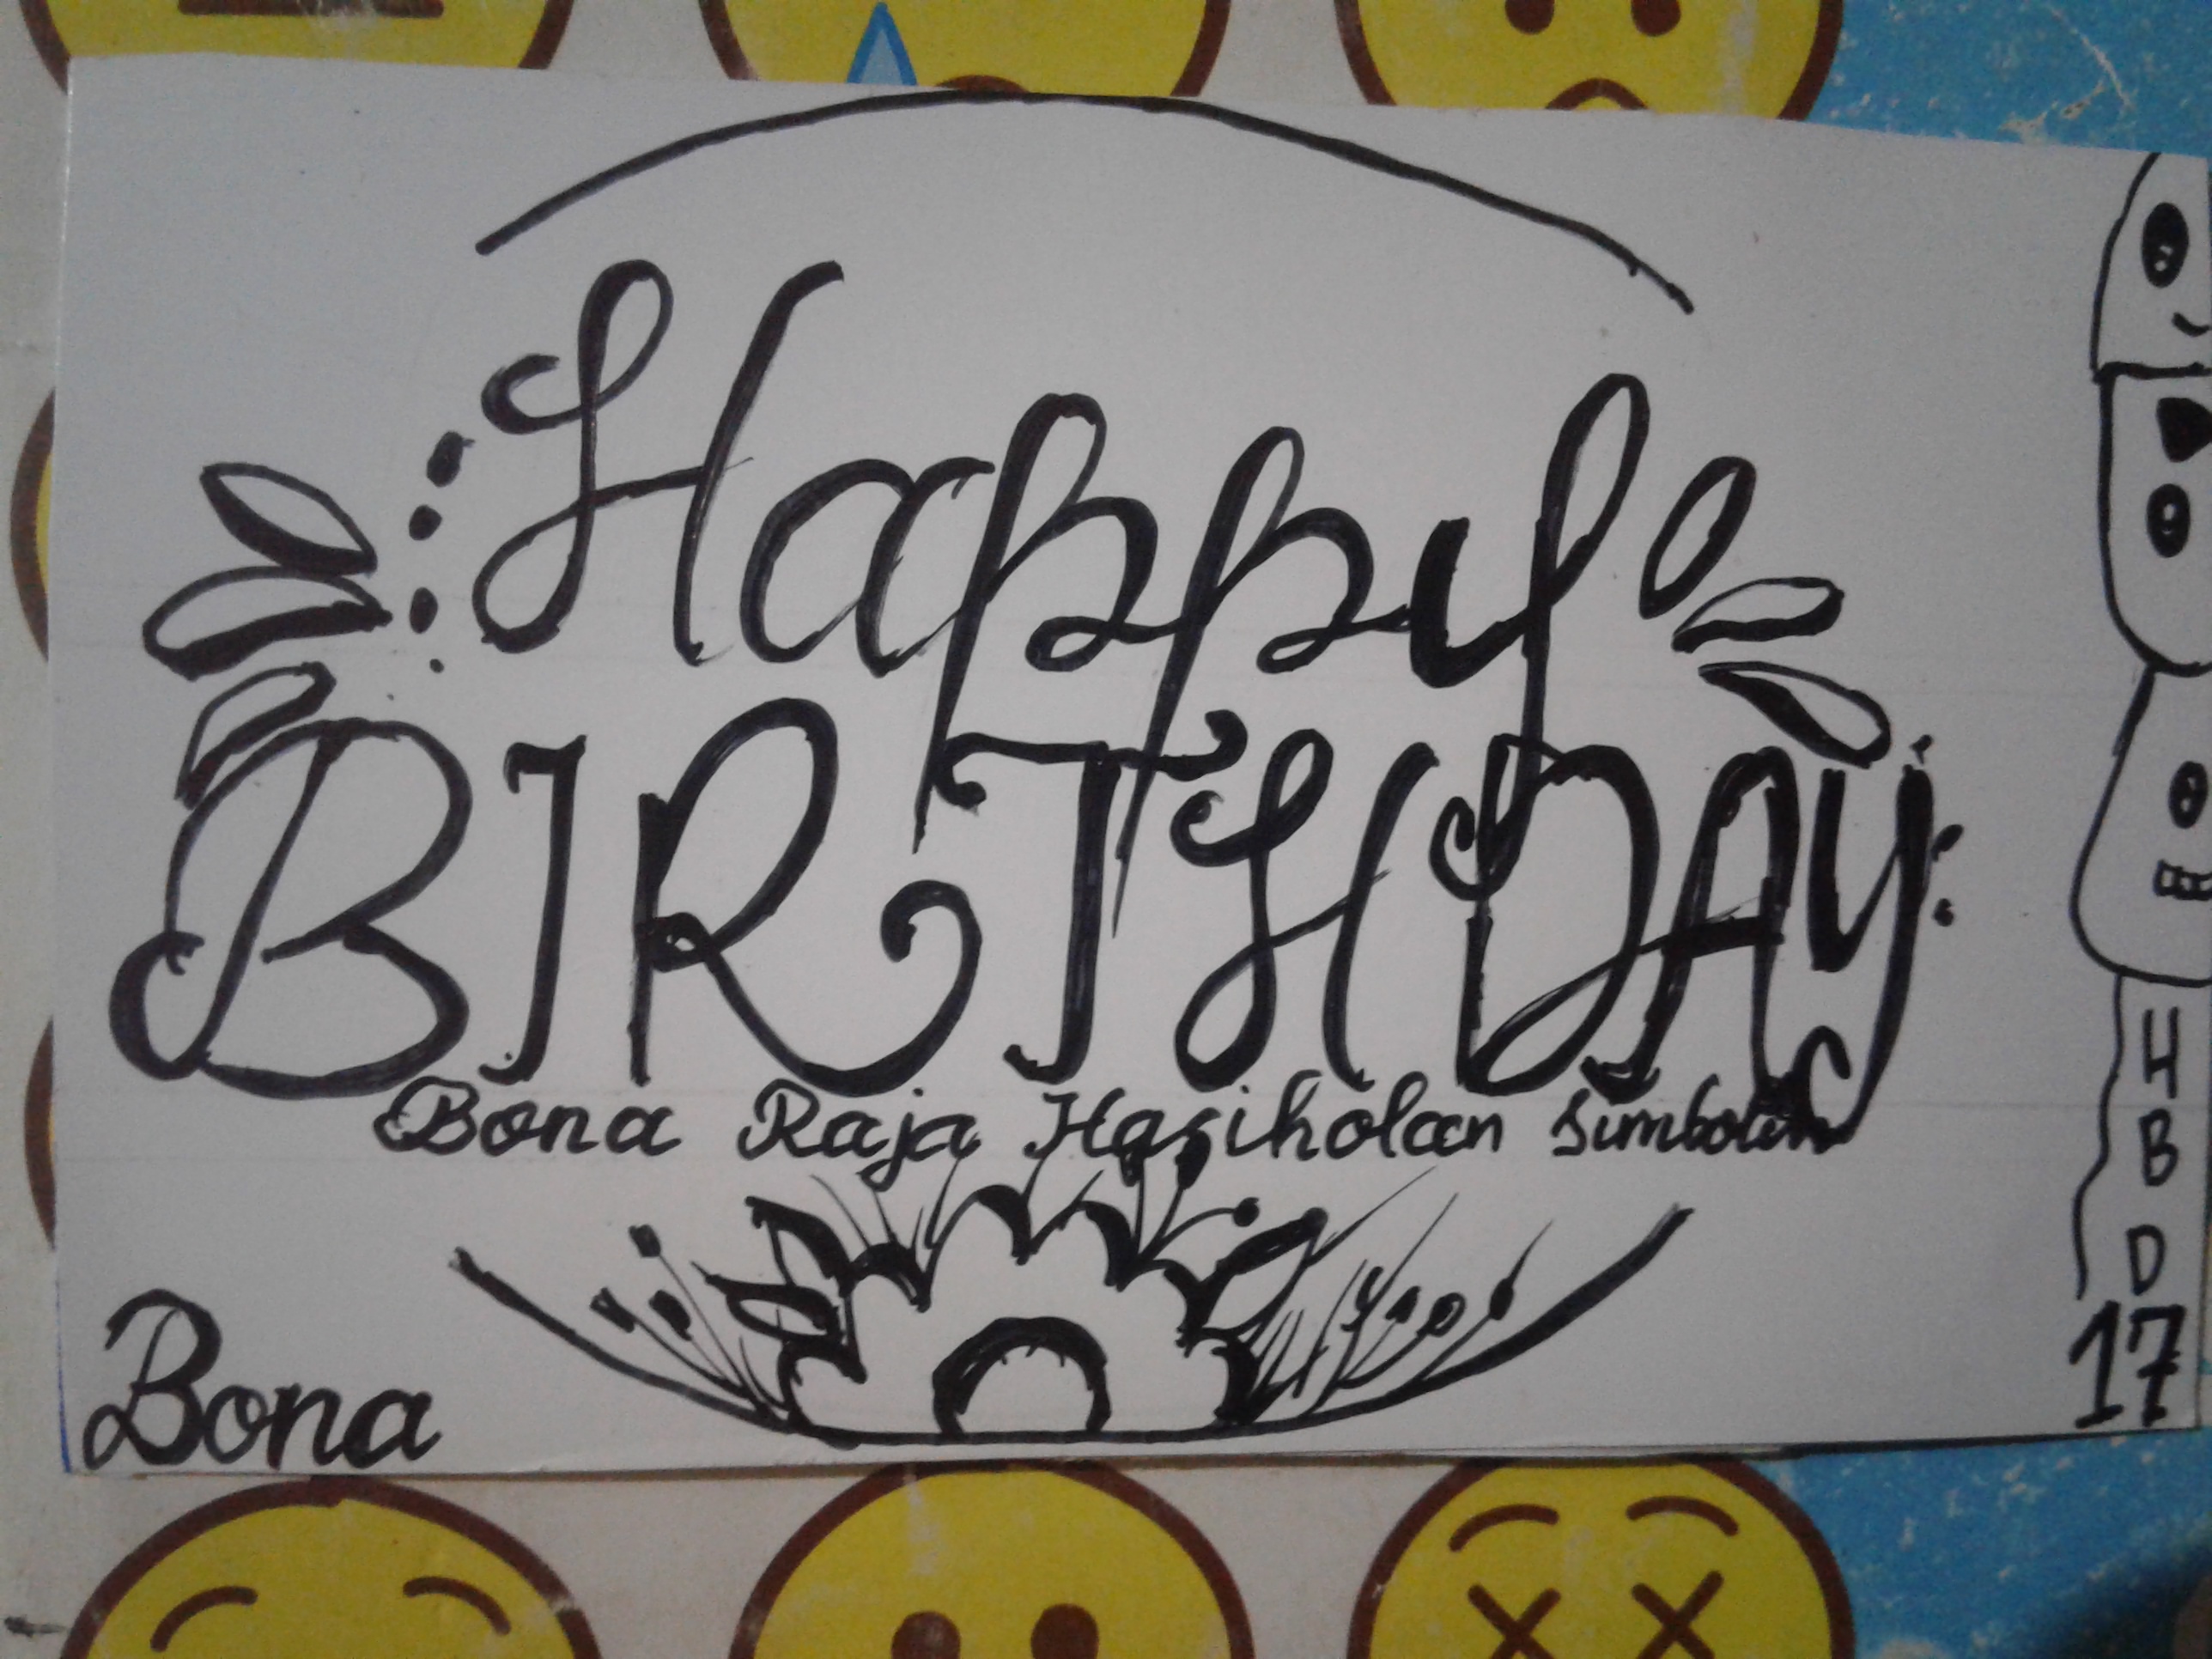 Happy
BIRTHDAY
Bona Raja Hasiholan
Bona
H
B
D
17